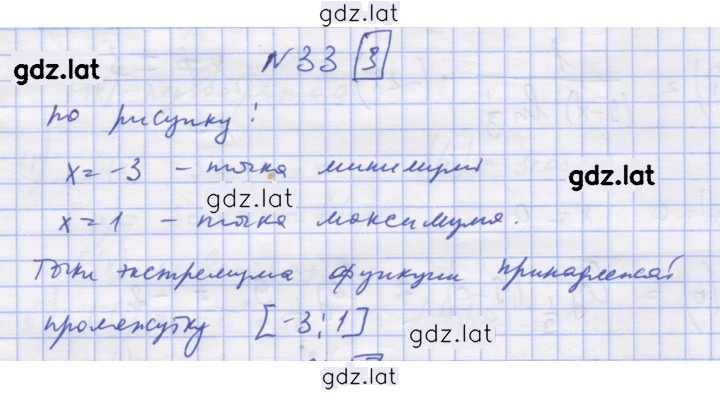 gdz.lat
gdz.lat
N 33 3
по рисунку:
gdz.lat
x = -3 - точка минимума
gdz.lat
x = 1 - точка максимума.
gdz.lat
Точки экстремума функции принадлежат
промежутку [-3; 1]
gdz.lat
gdz.lat